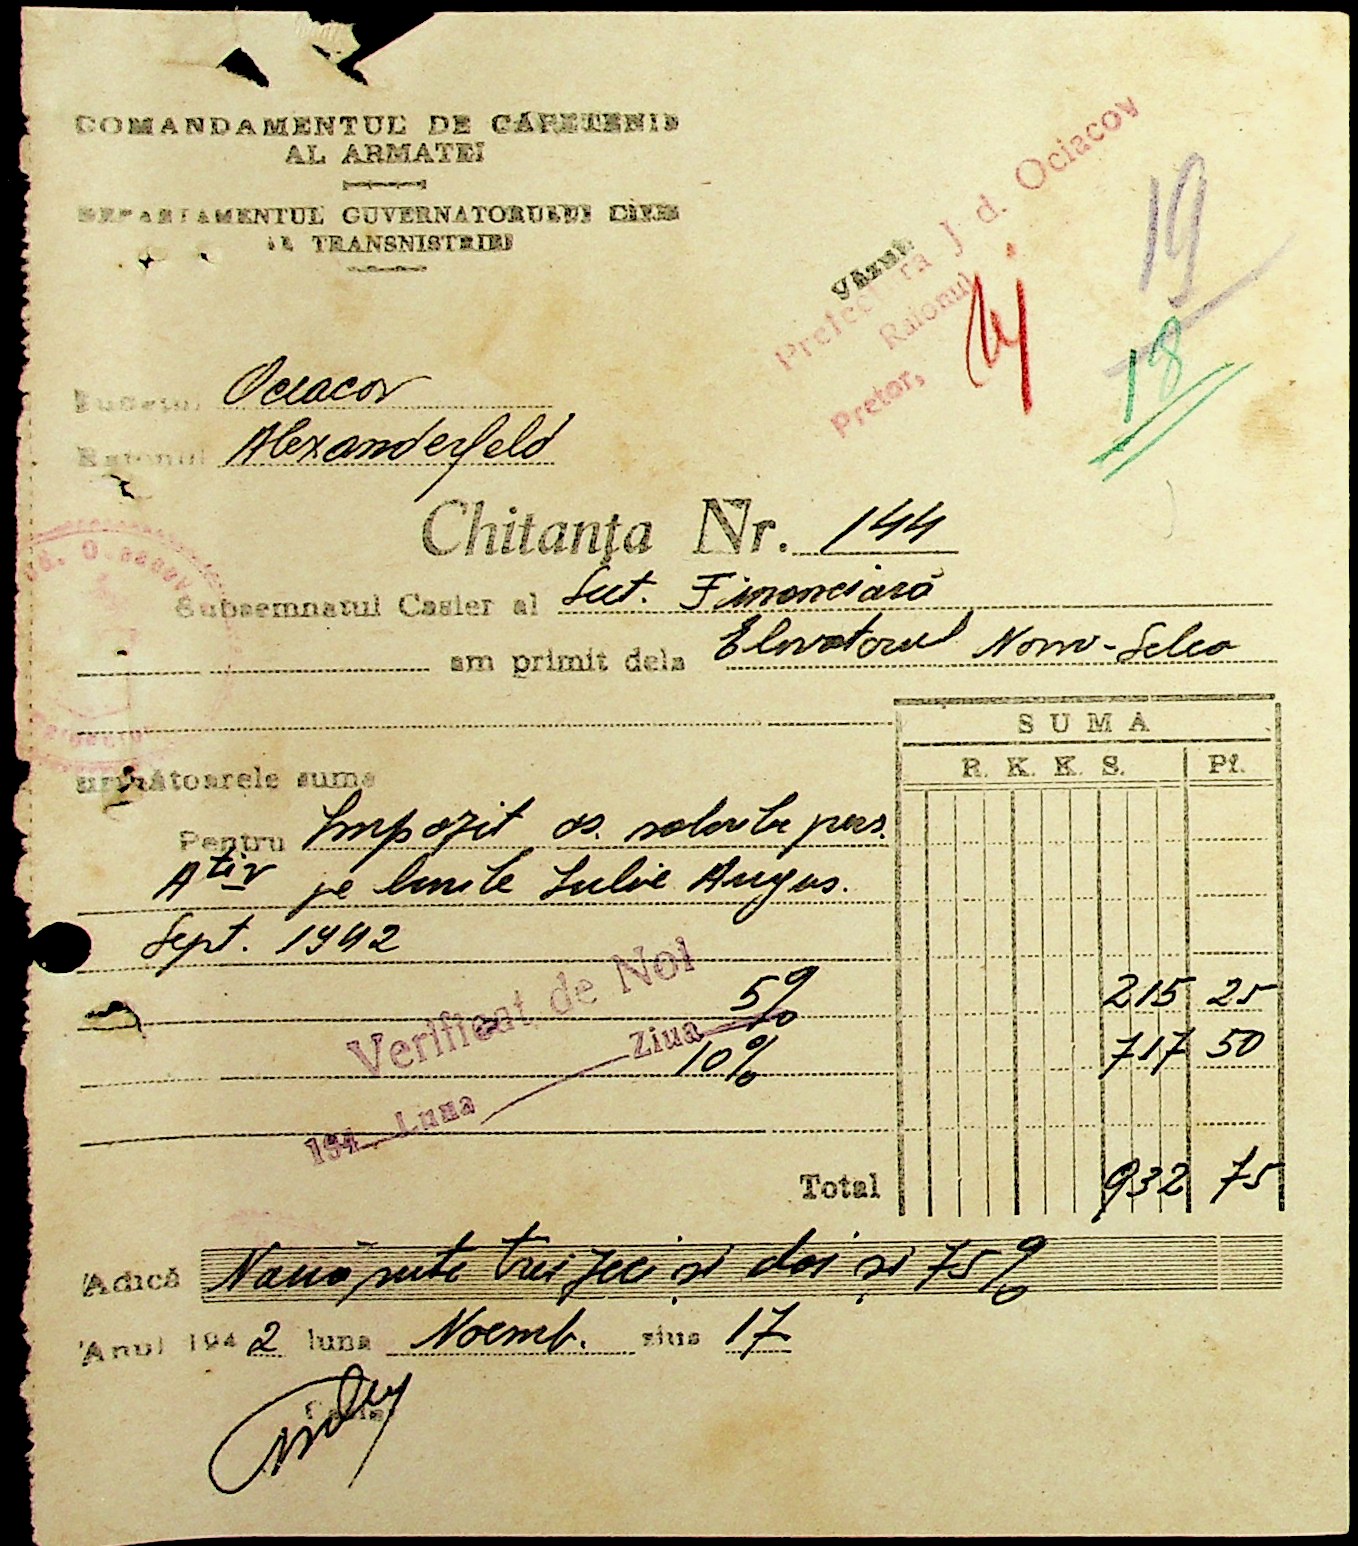 COMANDAMENTUL DE CĂPETENIE
AL ARMATEI
DEPARTAMENTUL GUVERNATORULUI CIVIL
AL TRANSNISTRIEI
Văzut,
Prefectura Jud. Ociacov
Raionul
Pretor,
19
18
Judeţul Ociacov
Raionul Alexanderfeld
Chitanţa Nr. 144
Subsemnatul Casier al Sect. Financiară
am primit dela Elevatorul Novo-Selca
următoarele sume
SUMA
R. K. K. S. Pf.
Pentru Impozit as. salarile pers.
Ativ pe lunile Iulie Augus.
Sept. 1942
5% 215 25
10% 717 50
Verificat de Noi
194 Luna Ziua
Total 932 75
Adică Nouă sute treizeci și doi și 75%
Anul 1942 luna Noemb. ziua 17
Casier